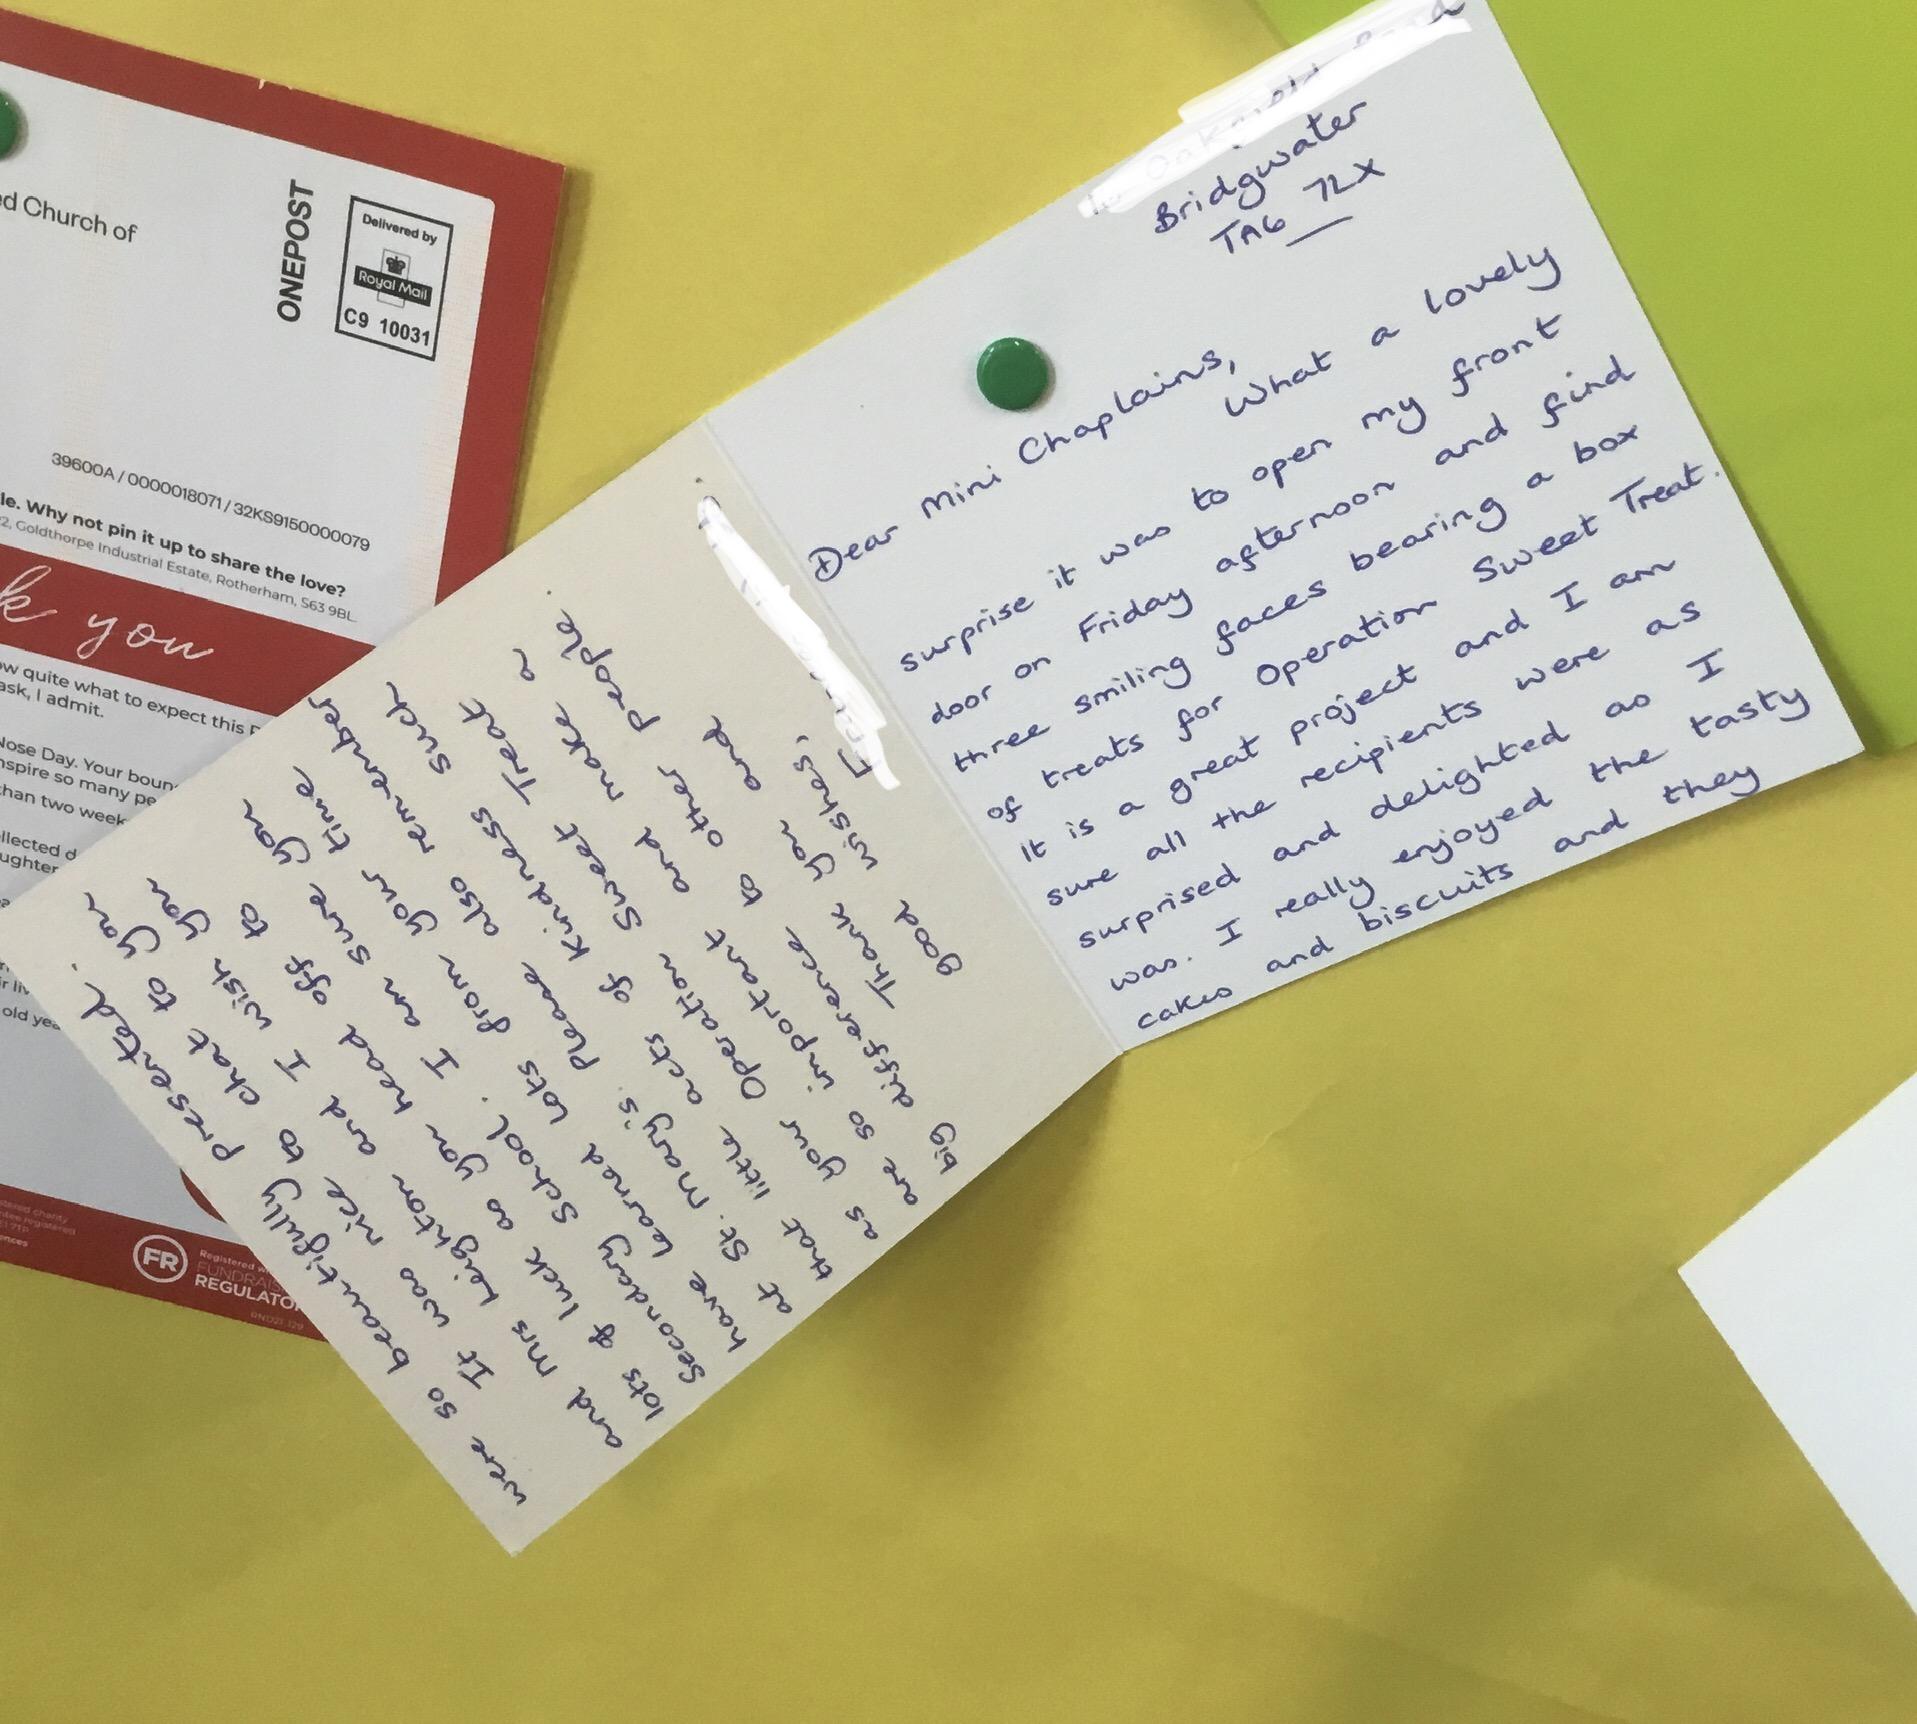 ed Church of
ONEPOST
Delivered by
Royal Mail
C9 10031
39600A / 0000018071 / 32KS9150000079
le. Why not pin it up to share the love?
2, Goldthorpe Industrial Estate, Rotherham, S63 9BL
k you
ow quite what to expect this
ask, I admit.
Nose Day. Your boun
nspire so many pe
than two week
llected d
ughter
old yea
FR
Registered
FUNDRAIS
REGULATO
Bridgwater
TA6 7LX
Dear Mini Chaplains,
What a lovely
surprise it was to open my front
door on Friday afternoon and find
three smiling faces bearing a box
of treats for Operation Sweet Treat.
It is a great project and I am
sure all the recipients were as
surprised and delighted as I
was. I really enjoyed the tasty
cakes and biscuits and they
were so beautifully presented.
It was nice to chat to you
and Mrs Leighton and I wish you
lots of luck as you head off to
Secondary School. I am sure you
have learned lots from your time
at St. Mary's. Please also remember
that little acts of kindness such
as your Operation Sweet Treat
are so important and make a
big difference to other people.
Thank you and
good wishes,